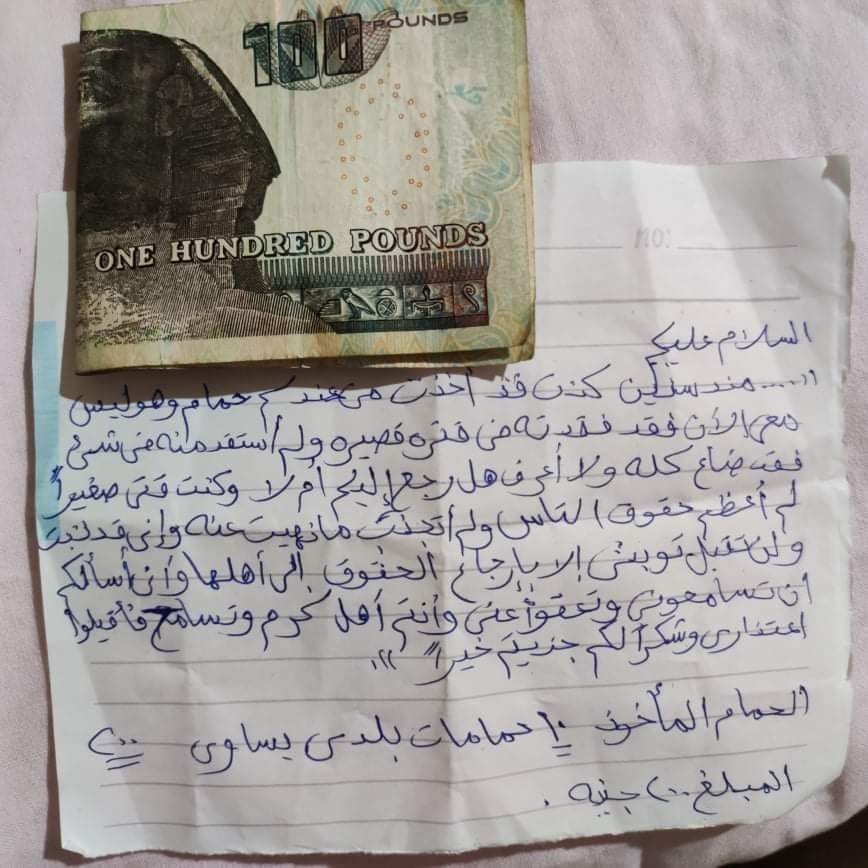 100 POUNDS
ONE HUNDRED POUNDS
no:
السلام عليكم
"..... منذ سنتين كنت قد أخذت من عندكم حمام وهو ليس
معى الآن فقد فقدته فى فتره قصيره ولم أستفد منه فى شئ
فقد ضاع كله ولا أعرف هل رجع إليكم أم لا وكنت فتى صغيراً
لم أعظم حقوق الناس ولم أتجنب ما نهيت عنه وإنى قد تبت
ولن تقبل توبتى إلا بإرجاع الحقوق إلى أهلها وأنى أسألكم
ان تسامحونى وتعفوا عنى وأنتم أهل كرم وتسامح فأقبلوا
اعتذارى وشكراً لكم جزيتم خيراً "..
الحمام المأخوذ ١٠ حمامات بلدى يساوى ٢٠٠
المبلغ ٢٠٠ جنيه .